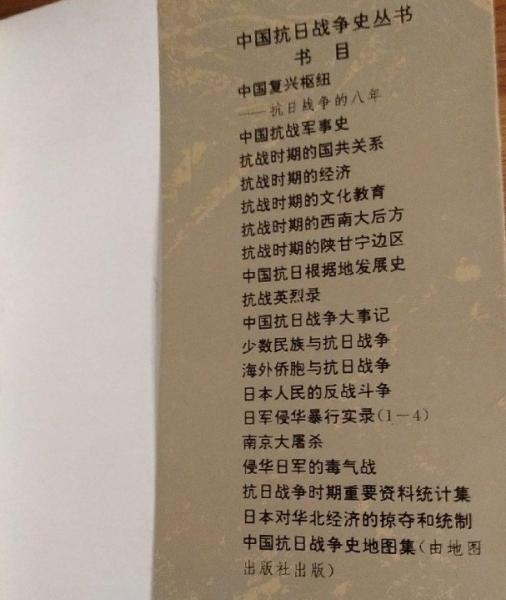 中国抗日战争史丛书
书 目
中国复兴枢纽
——抗日战争的八年
中国抗战军事史
抗战时期的国共关系
抗战时期的经济
抗战时期的文化教育
抗战时期的西南大后方
抗战时期的陕甘宁边区
中国抗日根据地发展史
抗战英烈录
中国抗日战争大事记
少数民族与抗日战争
海外侨胞与抗日战争
日本人民的反战斗争
日军侵华暴行实录(1—4)
南京大屠杀
侵华日军的毒气战
抗日战争时期重要资料统计集
日本对华北经济的掠夺和统制
中国抗日战争史地图集(由地图
出版社出版)